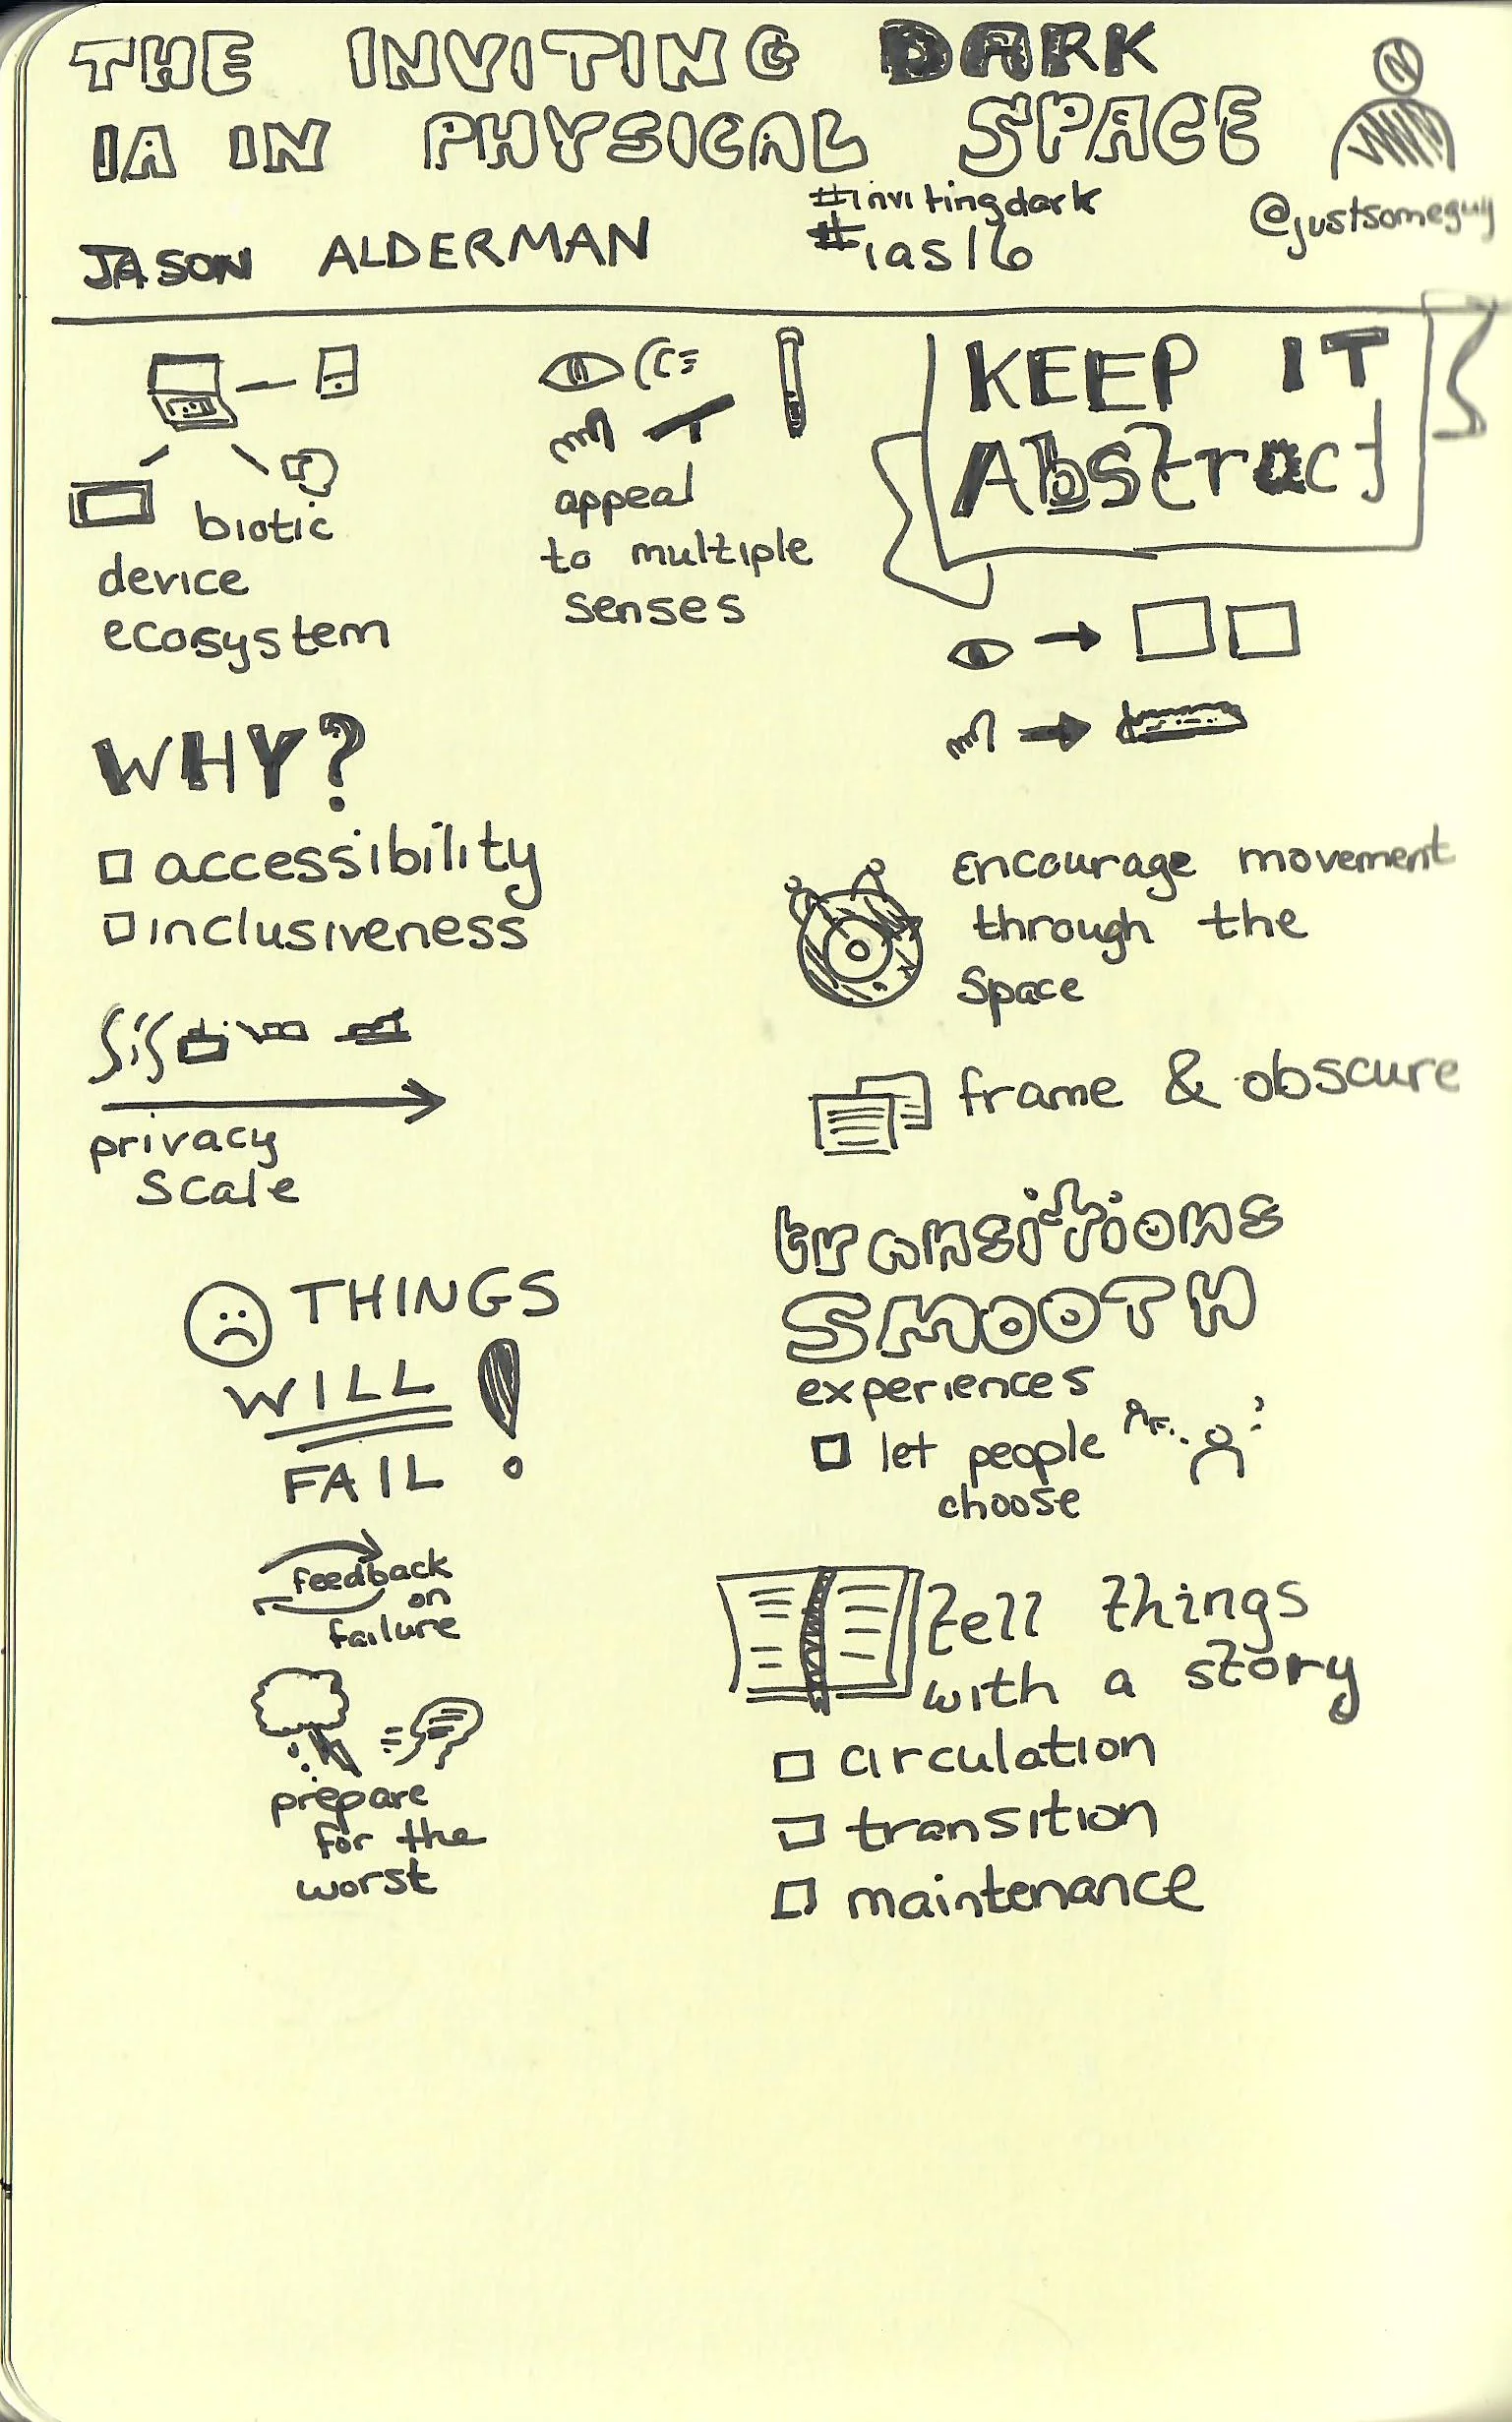 THE INVITING DARK
IA IN PHYSICAL SPACE
JASON ALDERMAN
#invitingdark
#ias16
@justsomeguy
biotic
device
ecosystem
appeal
to multiple
senses
KEEP IT
Abstract
WHY?
accessibility
inclusiveness
privacy
scale
THINGS
WILL
FAIL !
feedback
on
failure
prepare
for the
worst
Encourage movement
through the
Space
frame & obscure
transitions
SMOOTH
experiences
let people
choose
tell things
with a story
circulation
transition
maintenance